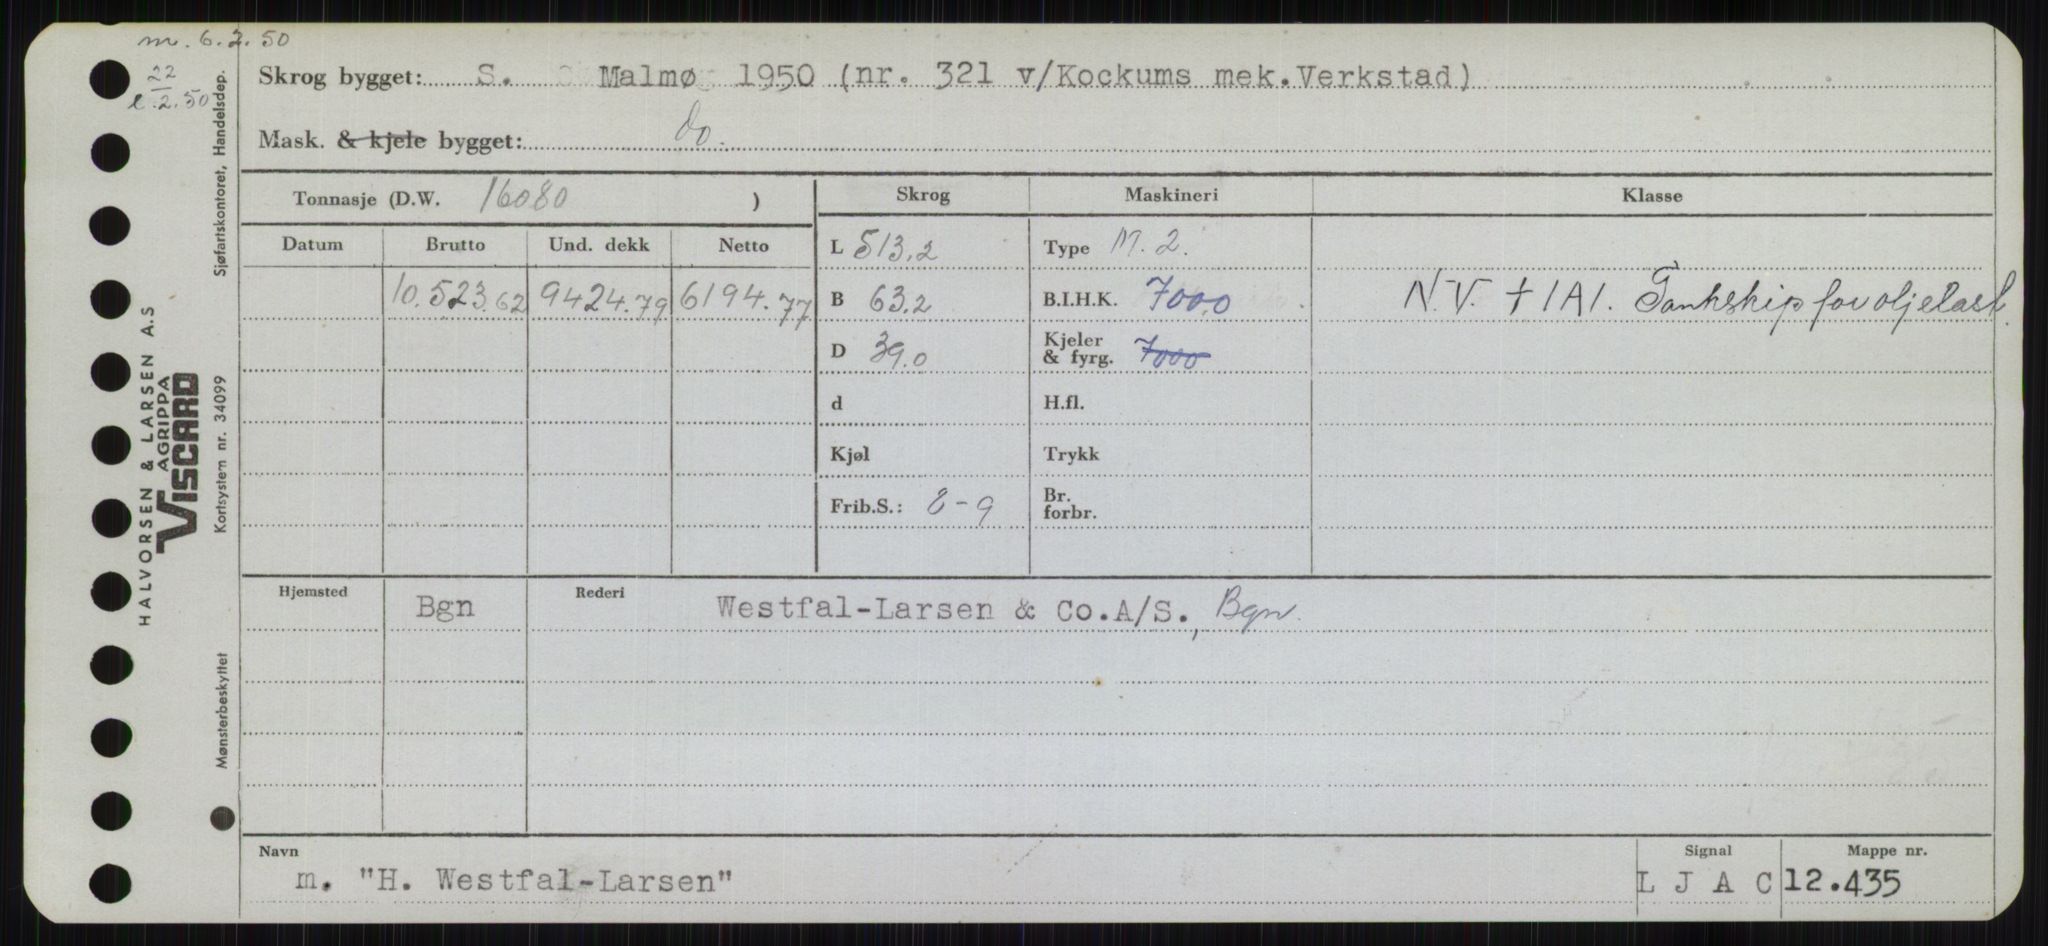 m. 6.2.50
22
l. 2.50
Skrog bygget: S. Malmø 1950 (nr. 321 v/Kockums mek.Verkstad)
Mask. & kjele bygget: do.
Tonnasje (D.W. 16080 )
Skrog Maskineri Klasse
Datum Brutto Und. dekk Netto
L 513.2 Type M. 2.
10.523.62 9424.79 6194.77 B 63.2 B.I.H.K. 7000 N.V. + 1A1. Tankskip for oljelast.
D 39.0 Kjeler & fyrg. 7000
d H.fl.
Kjøl Trykk
Frib.S.: 8-9 Br. forbr.
Hjemsted Bgn Rederi Westfal-Larsen & Co.A/S., Bgn.
Navn Signal Mappe nr.
m. "H. Westfal-Larsen" L J A C 12.435
HALVORSEN & LARSEN A.S
AGRIPPA
VISCARD
Sjøfartskontoret, Handelsdep.
Kortsystem nr. 34099
Mønsterbeskyttet